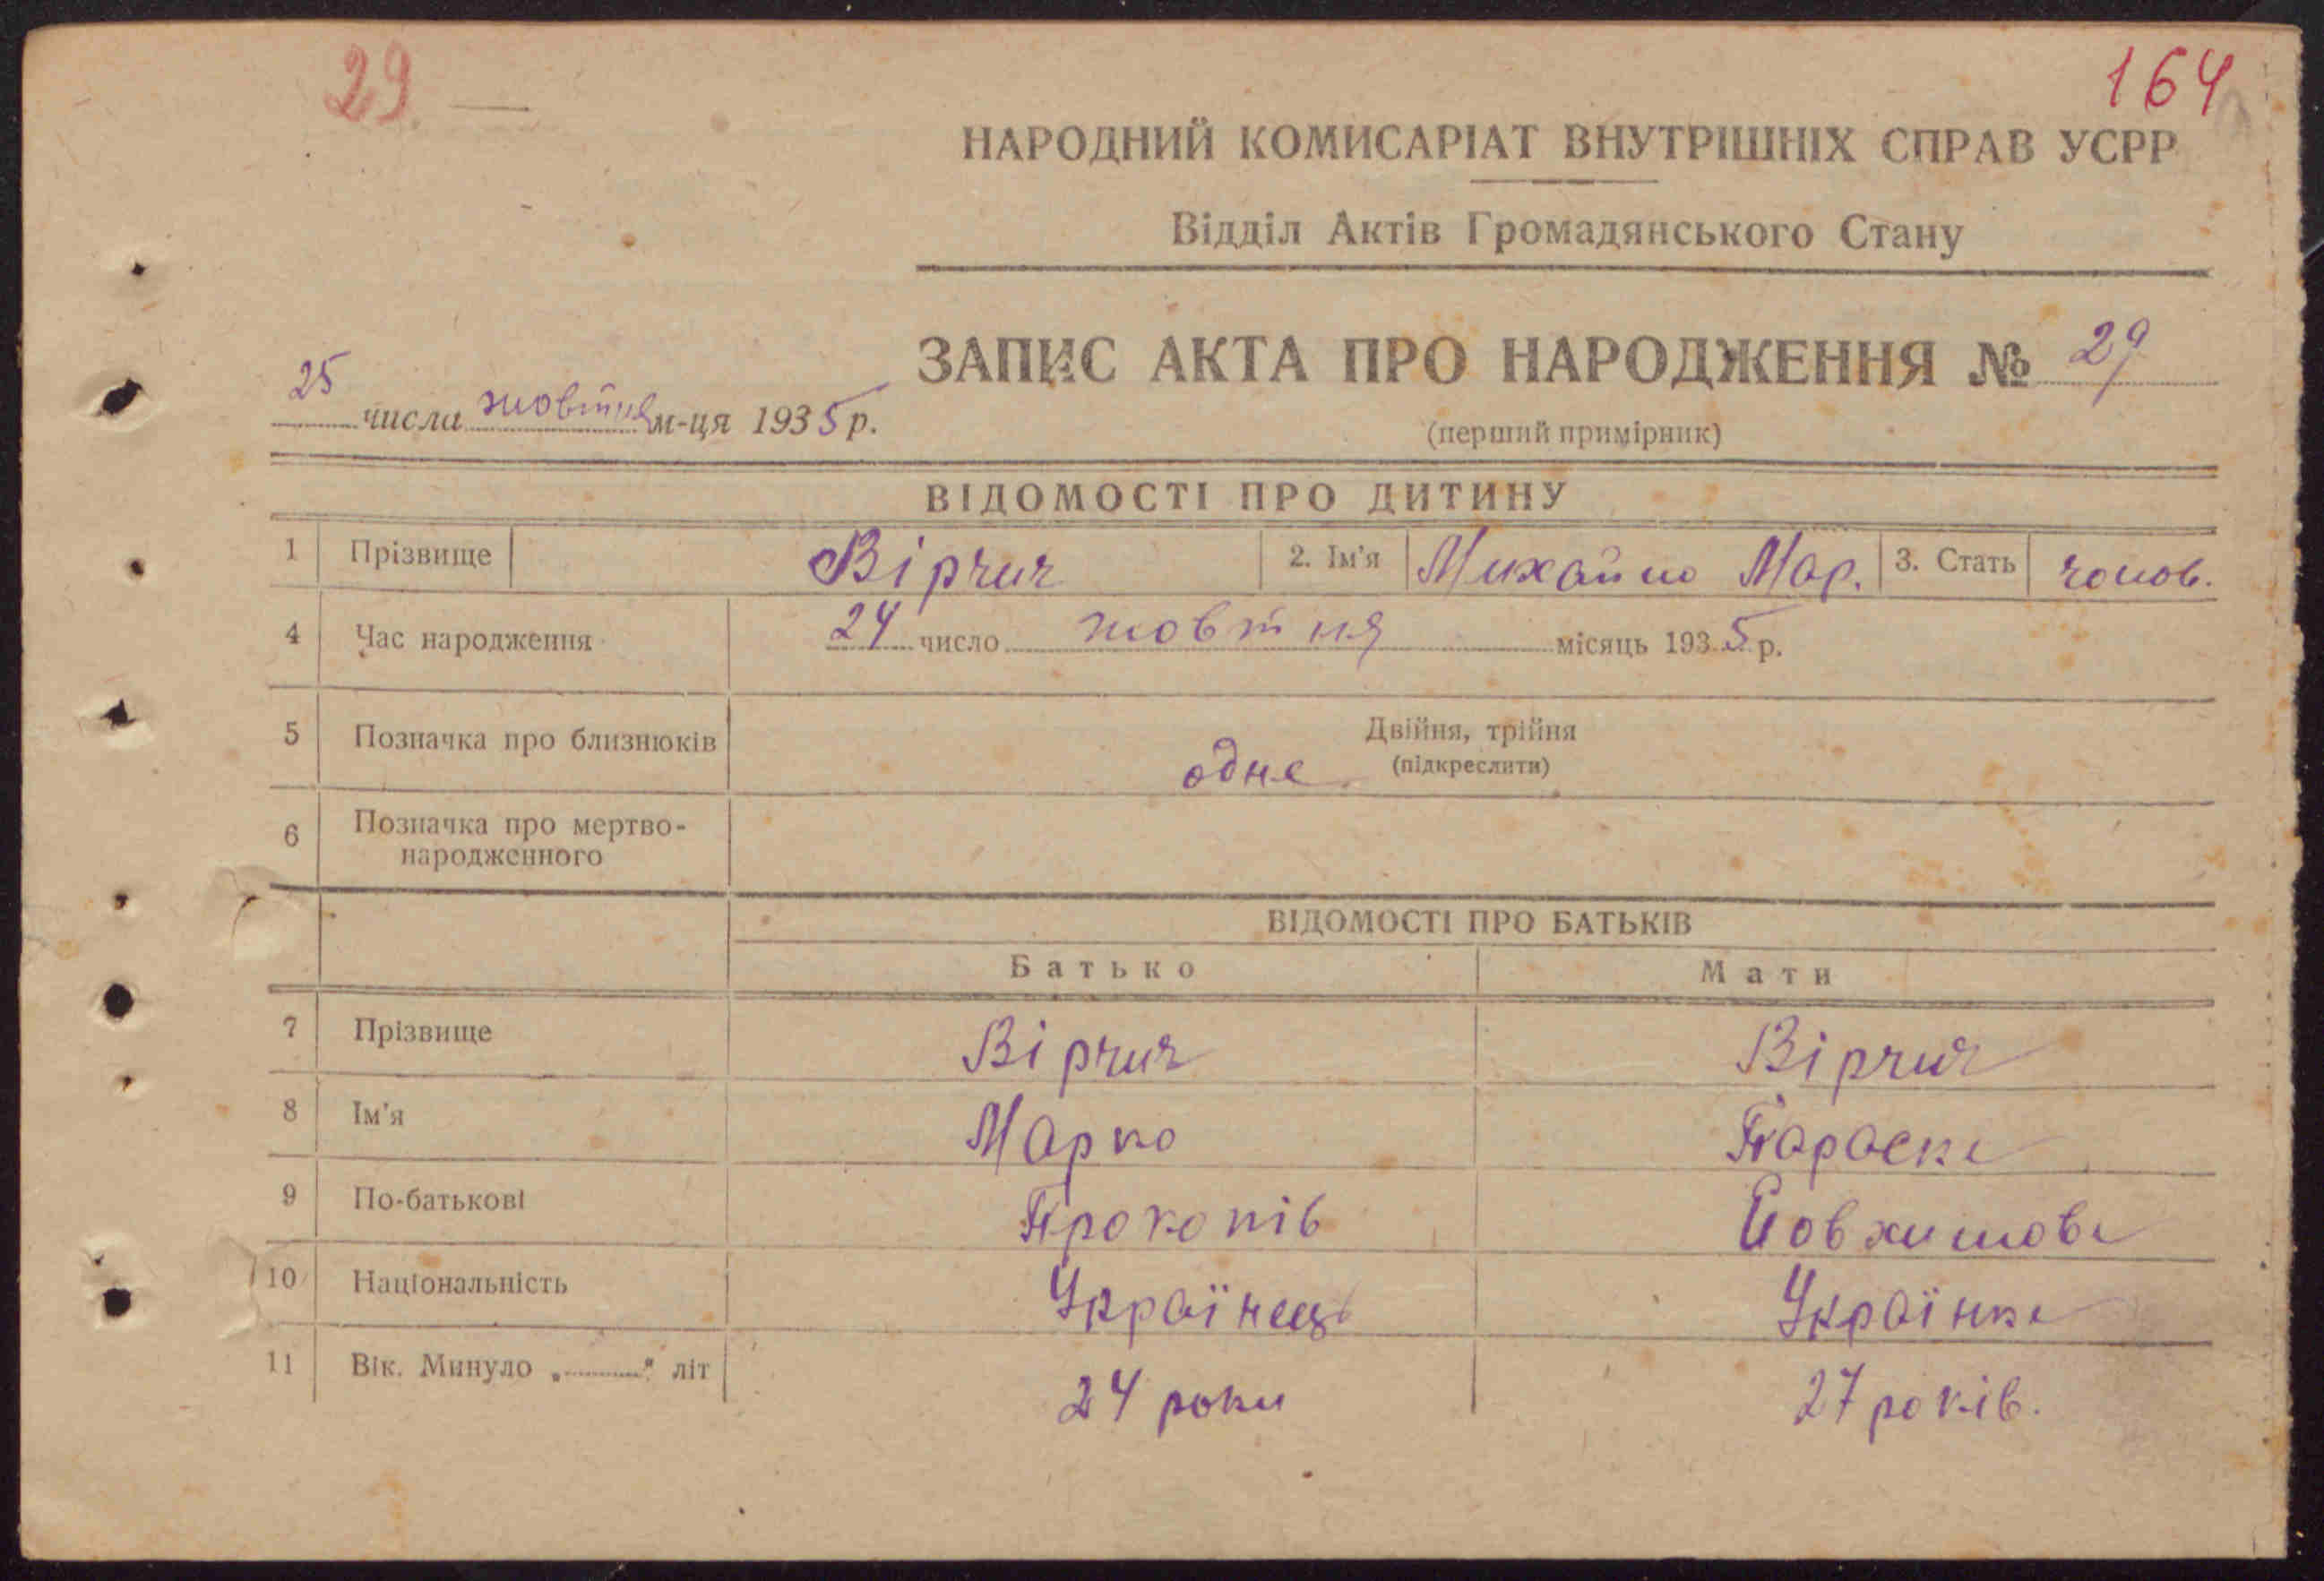 29
164
НАРОДНИЙ КОМИСАРІАТ ВНУТРІШНІХ СПРАВ УСРР
Відділ Актів Громадянського Стану
ЗАПИС АКТА ПРО НАРОДЖЕННЯ № 29
25 числа жовтня м-ця 1935 р.
(перший примірник)
ВІДОМОСТІ ПРО ДИТИНУ
1 Прізвище Вірчич 2. Ім'я Михайло Мар. 3. Стать чолов.
4 Час народження 24 число жовтня місяць 1935 р.
5 Позначка про близнюків одне Двійня, трійня
(підкреслити)
6 Позначка про мертво-
народженного
ВІДОМОСТІ ПРО БАТЬКІВ
Батько Мати
7 Прізвище Вірчич Вірчич
8 Ім'я Марко Параска
9 По-батькові Прокопів Йовхимова
10 Національність Українець Українка
11 Вік. Минуло „............“ літ 24 роки 27 років.